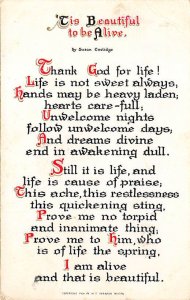 'Tis Beautiful
to be Alive.
by Susan Coolidge
Thank God for life!
Life is not sweet always;
Hands may be heavy laden;
hearts care-full;
Unwelcome nights
follow unwelcome days,
And dreams divine
end in awakening dull.
Still it is life, and
life is cause of praise;
This ache, this restlessness
this quickening sting,
Prove me no torpid
and inanimate thing;
Prove me to Him, who
is of life the spring,
I am alive
and that is beautiful.